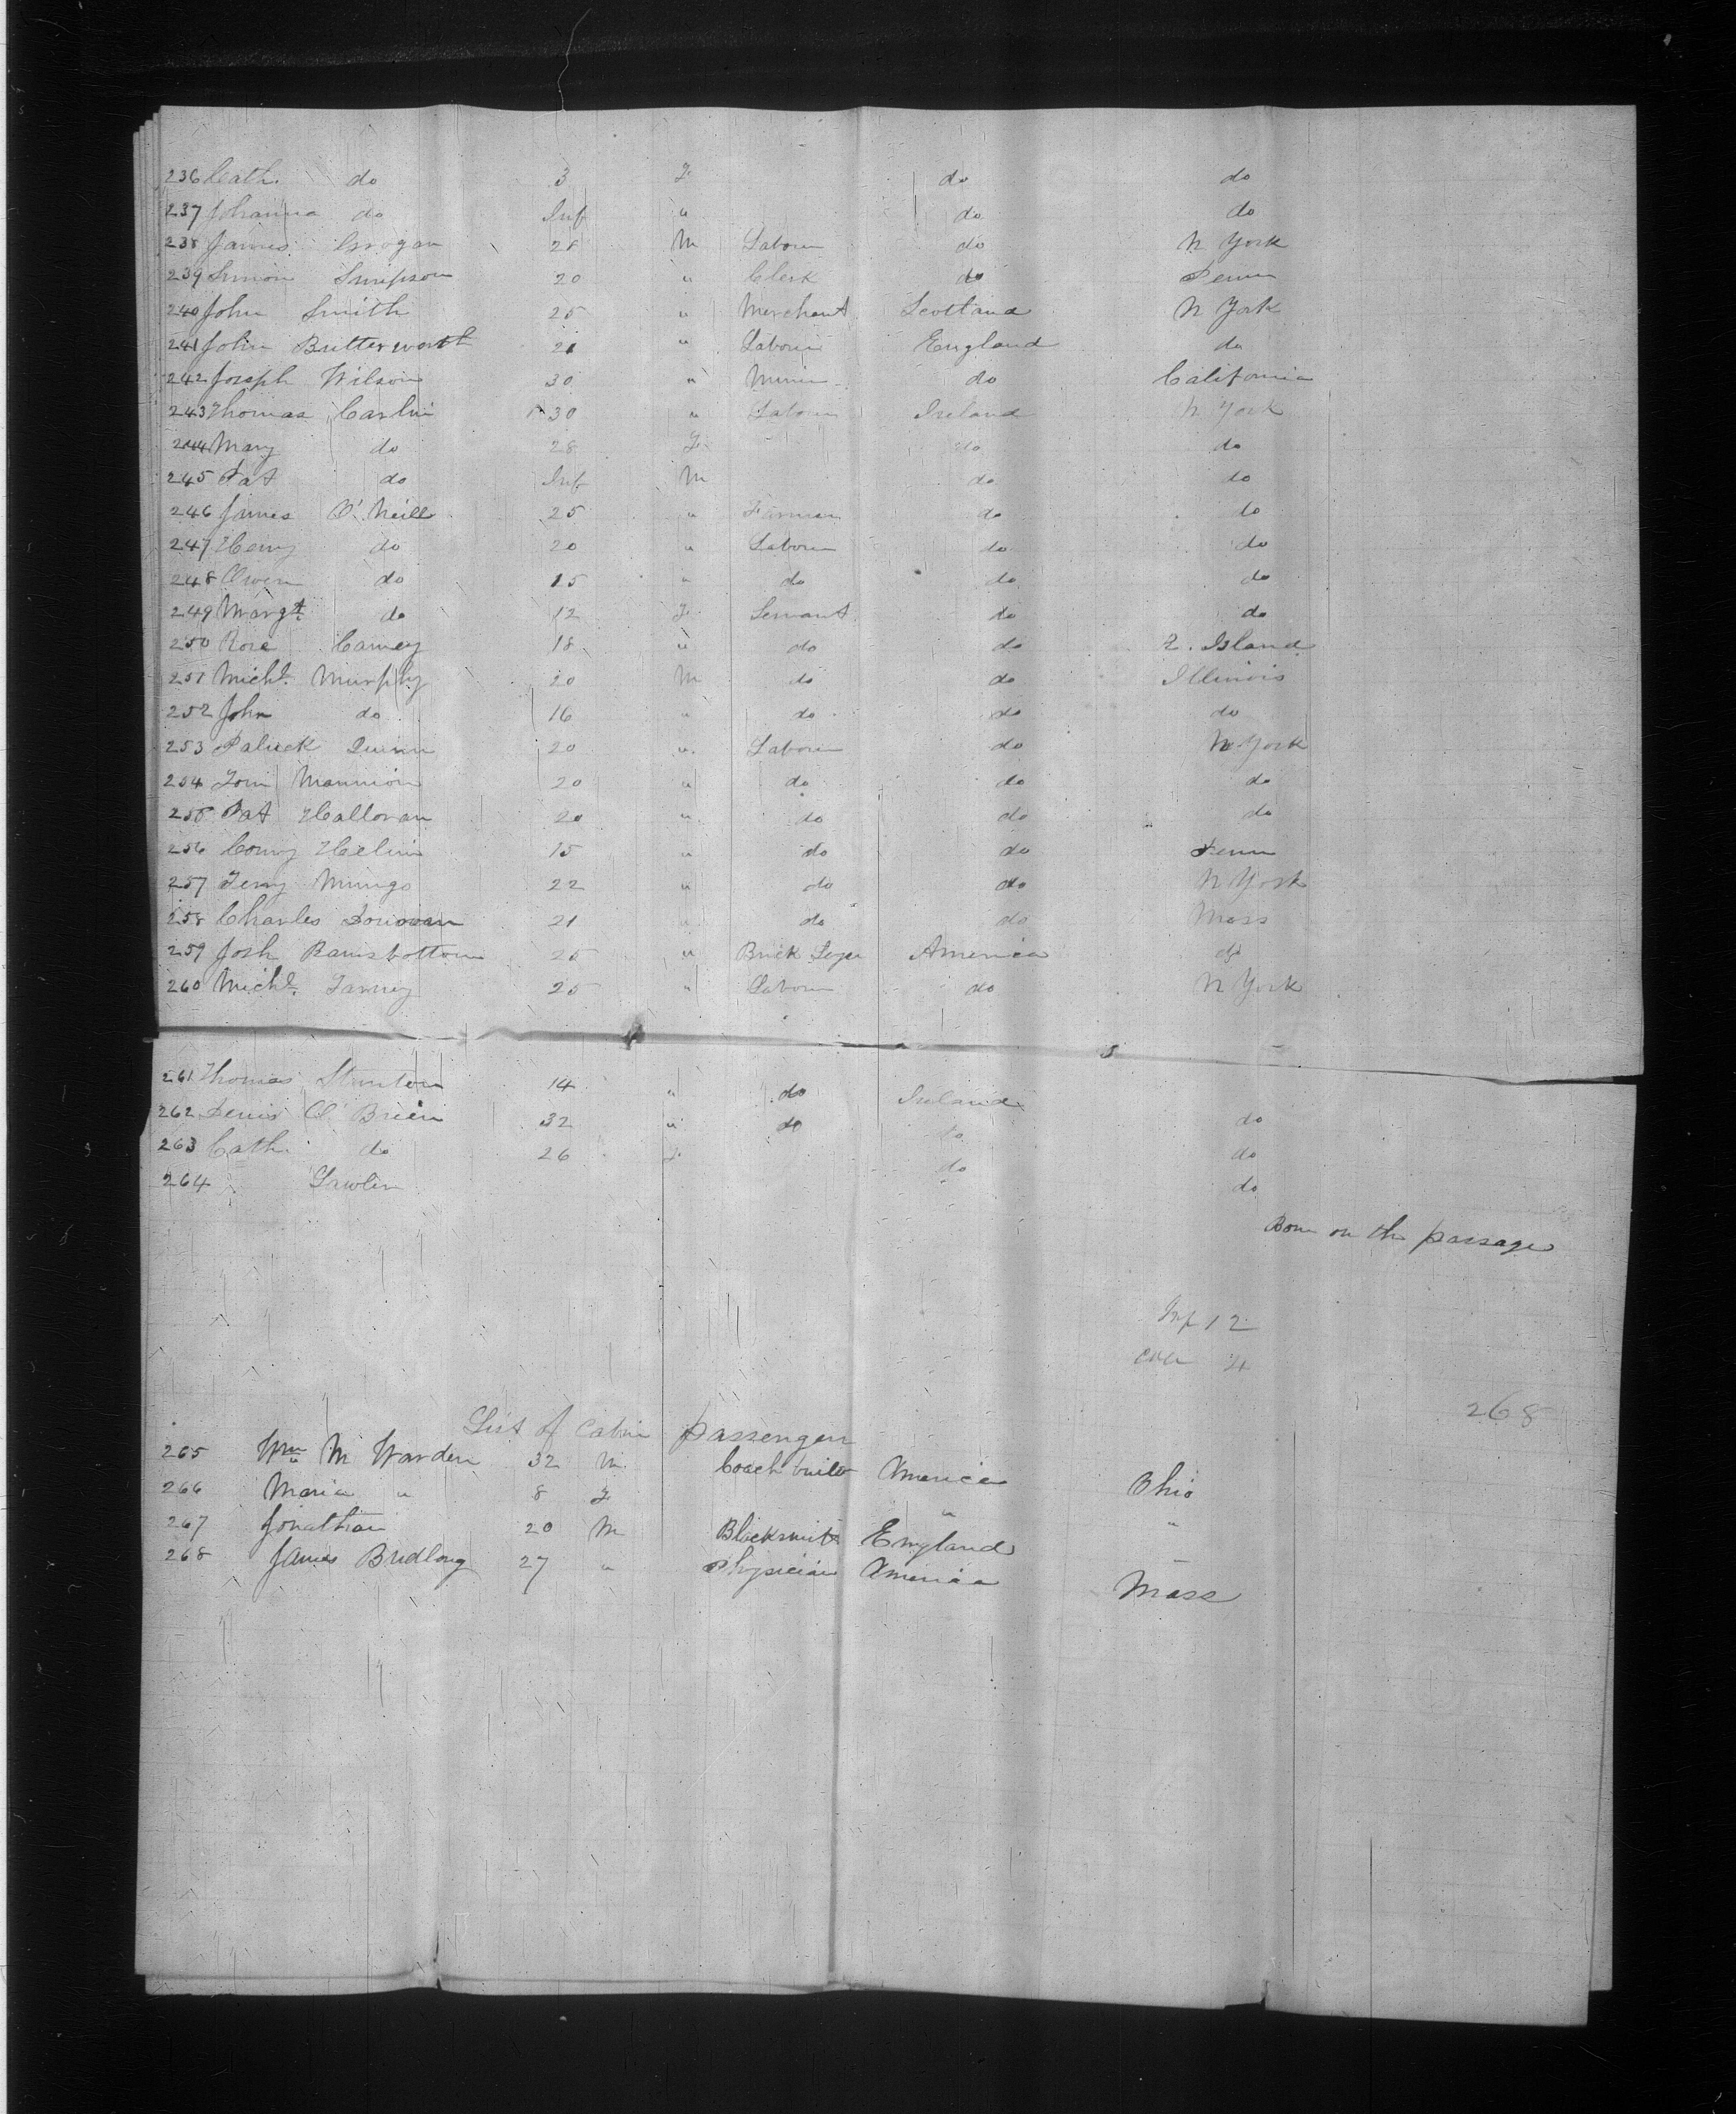 236 Cath. do 3 F do do
237 Johanna do Inf " do do
238 James Grogan 28 M Labour do N York
239 Simon Simpson 20 " Clerk do Penn
240 John Smith 25 " Merchant Scotland N York
241 John Butterworth 21 " Labour England do
242 Joseph Wilson 30 " Miner do California
243 Thomas Carlin 30 " Labour Ireland N York
244 Mary do 28 F do do
245 Pat do Inf M do do
246 James O'Neill 25 " Farmer do do
247 Henry do 20 " Labour do do
248 Owen do 15 " do do do
249 Margt do 12 F Servant do do
250 Rose Carney 18 " do do R. Island
251 Michl. Murphy 20 M do do Illinois
252 John do 16 " do do do
253 Patrick Quinn 20 " Labour do N York
254 Tom Mannion 20 " do do do
255 Pat Halloran 20 " do do do
256 15 " do do Penn
257 Terry 22 " do do N York
258 Charles Donovan 21 " do do Mass
259 Josh Ramsbottom 25 " Brick Layer America do
260 Michl. 25 " Labour do N York
261 Thomas Stanton 14 " do Ireland do
262 Denis O'Brien 32 " do do do
263 Cath. do 26 F do do
264
Born on the passage
Inf 12
over 4
268
List of Cabin passengers
265 Wm M Warden 32 M Coach builder America Ohio
266 Maria " 8 F " "
267 Jonathan 20 M Blacksmith England
268 James Budlong 27 " Physician America Mass